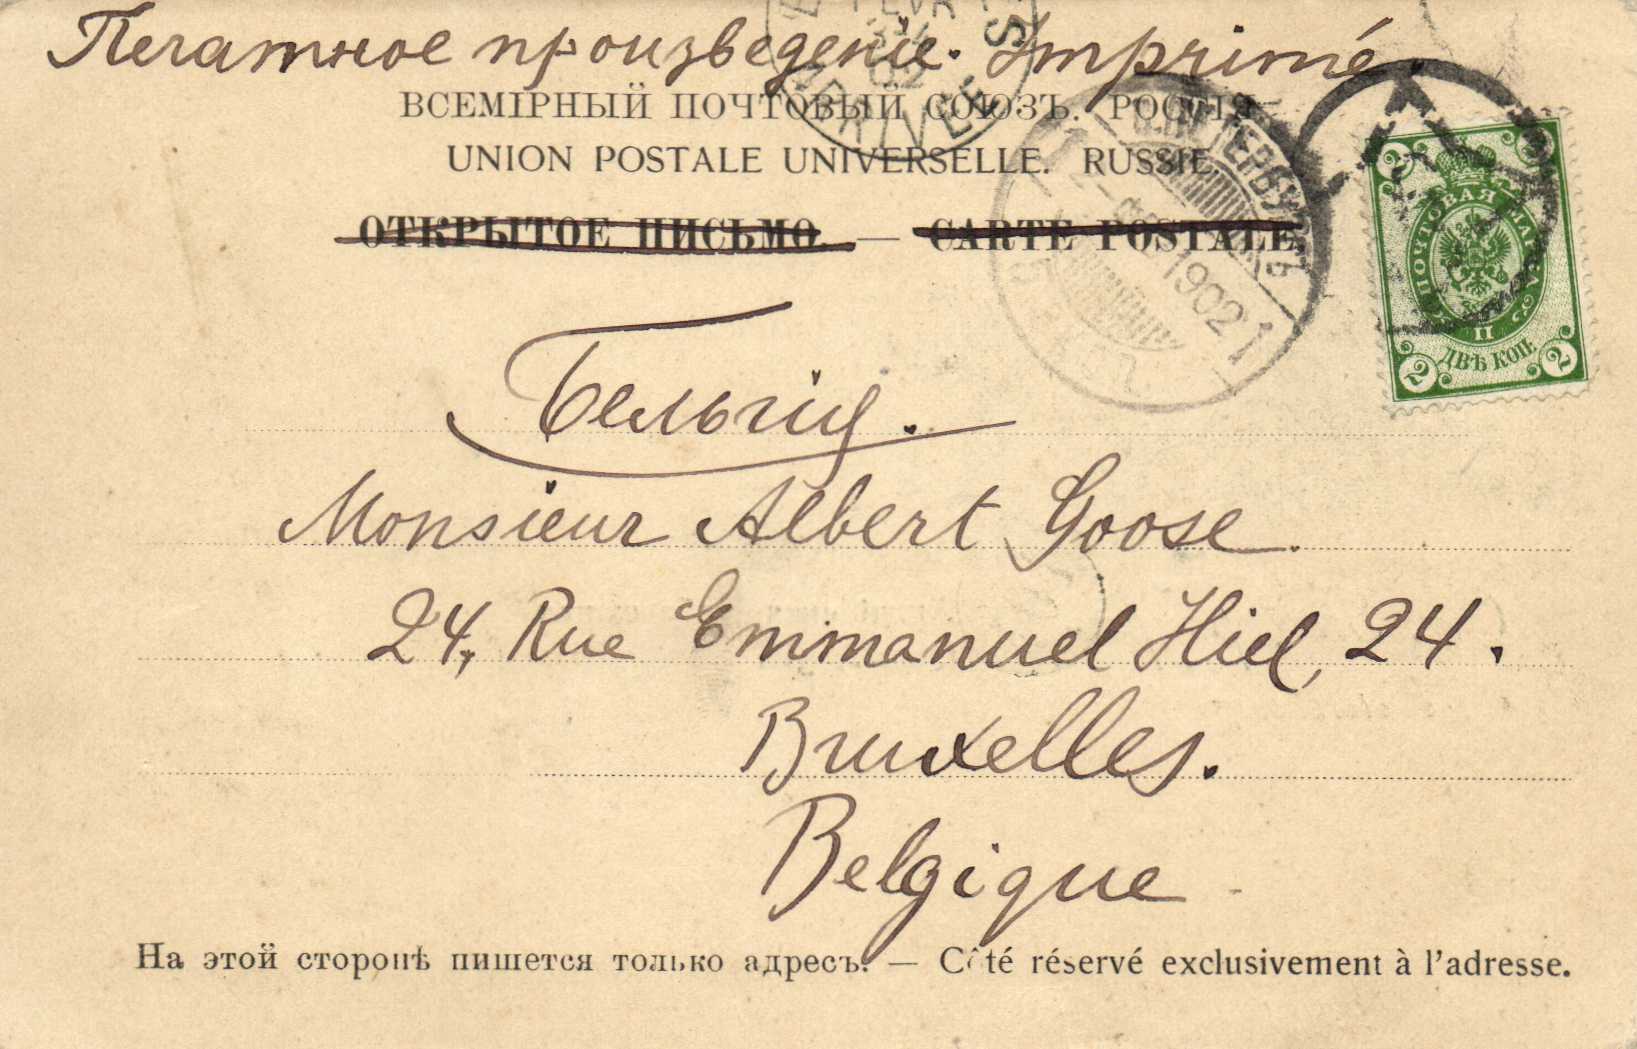 Печатное произведенiе. Imprimé.
ВСЕМIРНЫЙ ПОЧТОВЫЙ СОЮЗЪ. РОССIЯ
UNION POSTALE UNIVERSELLE. RUSSIE.
ОТКРЫТОЕ ПИСЬМО. — CARTE POSTALE.
ARRIVÉE
1902
ПОЧТОВАЯ МАРКА
II
ДВѢ КОП.
2
2
Бельгiя.
Monsieur Albert Goose.
24, Rue Emmanuel Hiel, 24.
Bruxelles.
Belgique
На этой сторонѣ пишется только адресъ. — Côté réservé exclusivement à l'adresse.